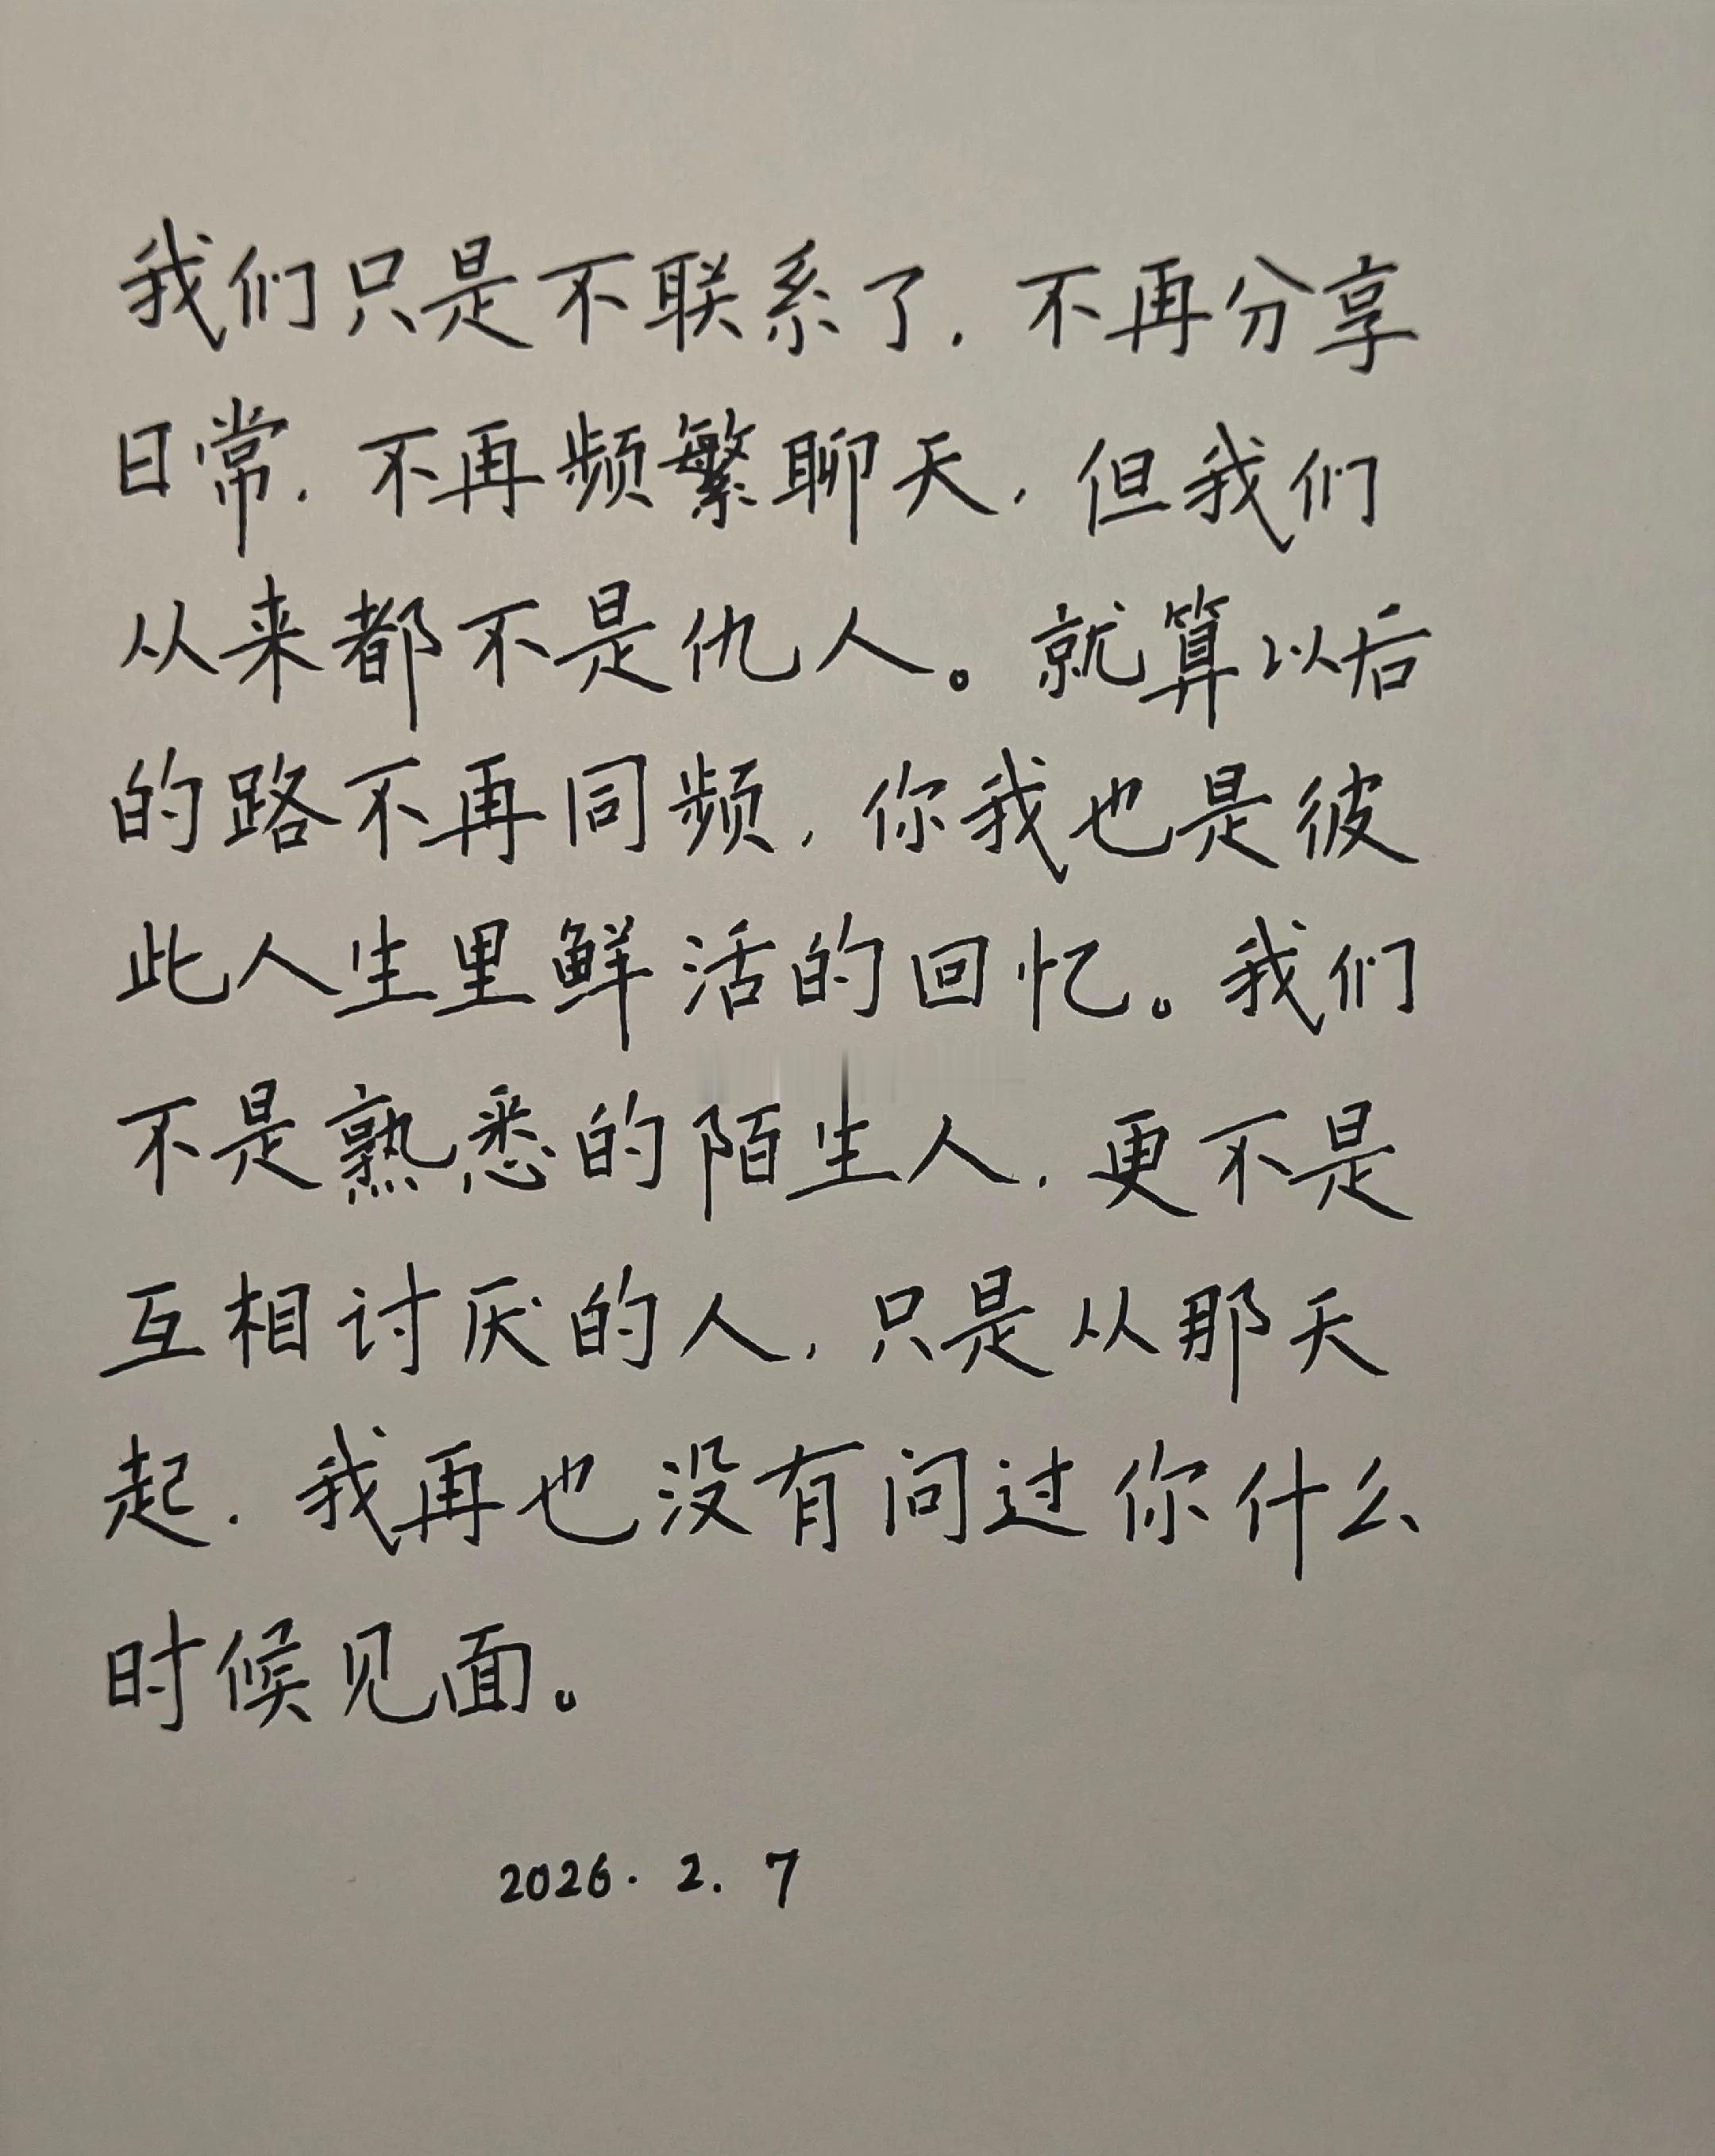 我们只是不联系了，不再分享
日常，不再频繁聊天，但我们
从来都不是仇人。就算以后
的路不再同频，你我也是彼
此人生里鲜活的回忆。我们
不是熟悉的陌生人，更不是
互相讨厌的人，只是从那天
起，我再也没有问过你什么
时候见面。
2026.2.7